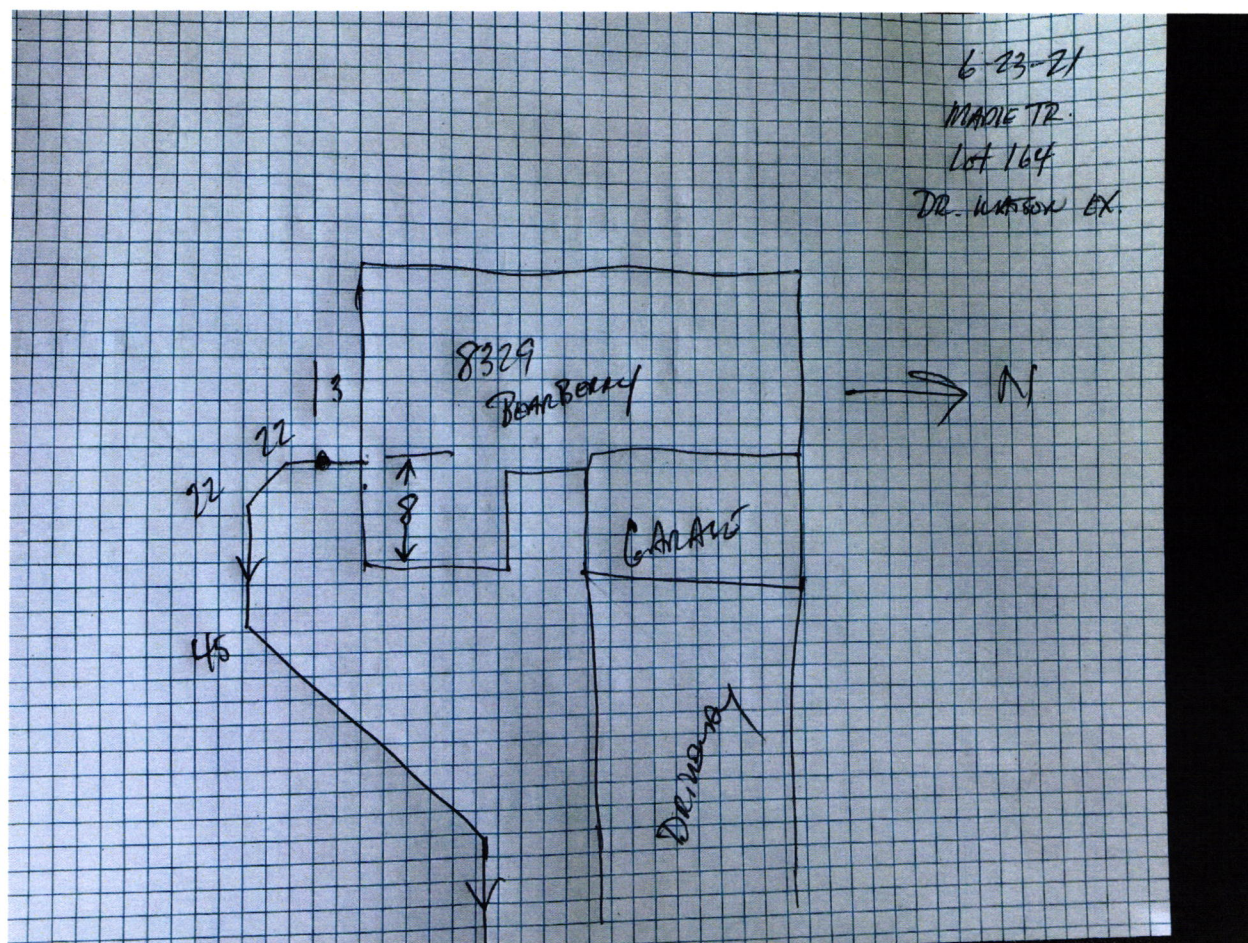 6-23-21
MADIE TR.
Lot 164
DR. WATSON EX.
8329
BEARBERRY
3
N
22
22
8
GARAGE
45
DRIVEWAY